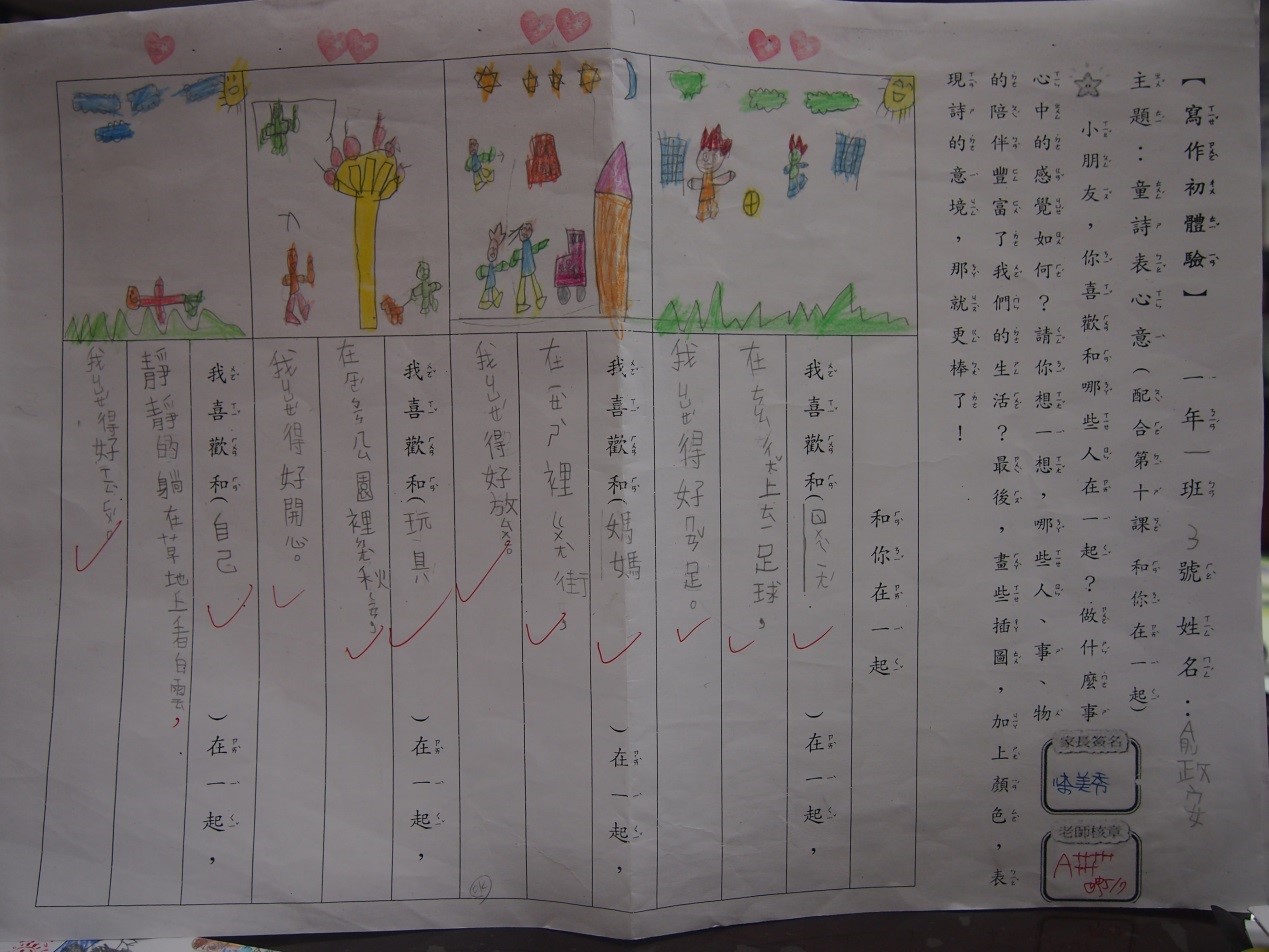 【寫作初體驗】 一年一班 3 號 姓名：俞政安
主題：童詩表心意（配合第十課 和你在一起）
小朋友，你喜歡和哪些人在一起？做什麼事
心中的感覺如何？請你想一想，哪些人、事、物
的陪伴豐富了我們的生活？最後，畫些插圖，加上顏色，表
現詩的意境，那就更棒了！
家長簽名
美秀
老師核章
A
5/7
和你在一起
我喜歡和( )在一起，
在 上ㄊㄧ足球，
我ㄐㄩㄝ得好 足。
我喜歡和(媽媽)在一起，
在 裡ㄍㄨㄤ街，
我ㄐㄩㄝ得好放ㄙㄨㄥ。
我喜歡和(玩具)在一起，
在 公園裡 秋ㄑㄧㄢ，
我ㄐㄩㄝ得好開心。
我喜歡和(自己)在一起，
靜靜的躺在草地上看白雲，
我ㄐㄩㄝ得好 。